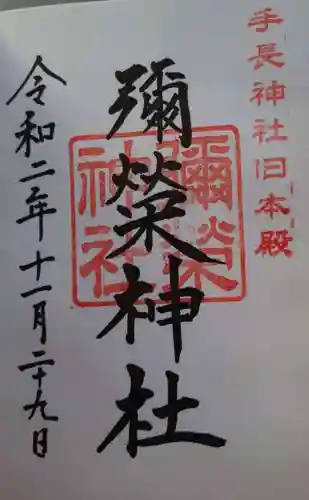 手長神社旧本殿
彌榮神社
彌榮神社
令和二年十一月二十九日